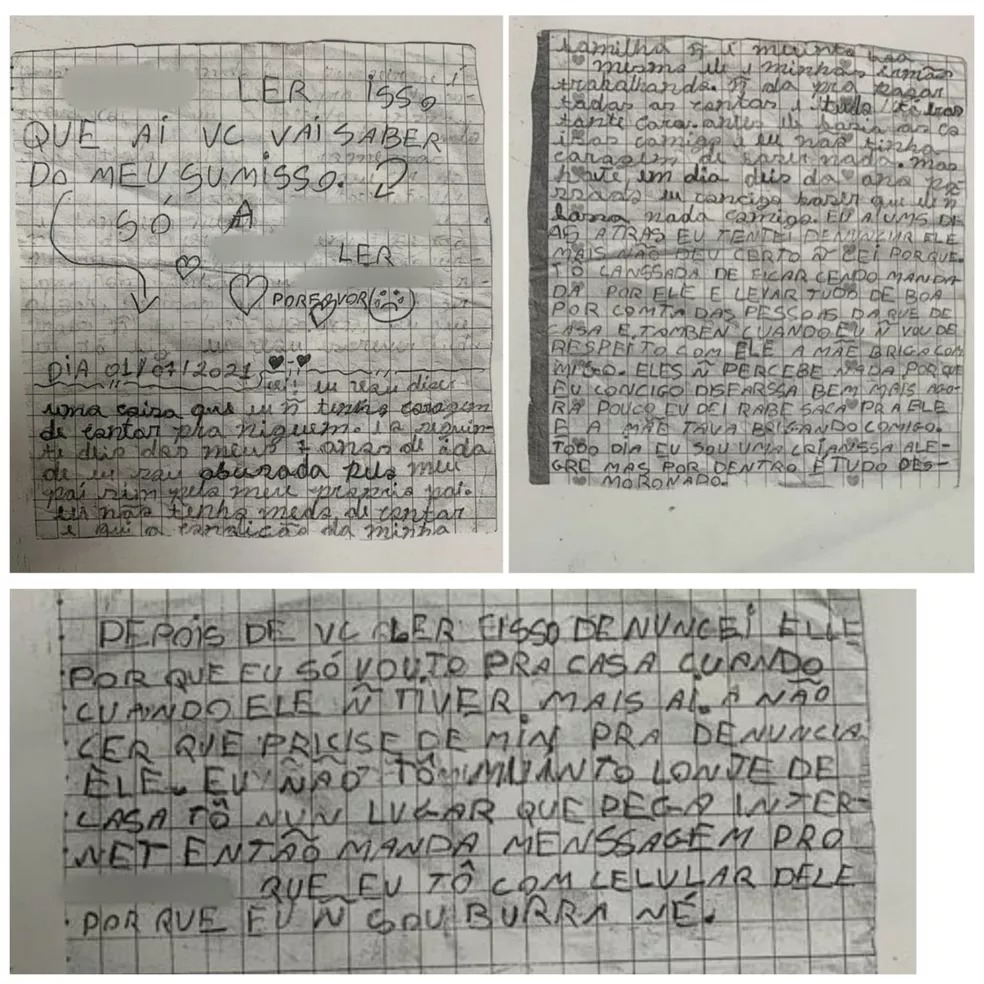 LER ISSO
QUE AÍ VC VAI SABER
DO MEU SUMISSO.
SÓ A
LER
POR FAVOR
DIA 01/07/2021
oi! eu vou dizer
uma coisa que eu ñ tenho coragem
de contar pra niguem. é a seguin-
te deis dos meus 7 anos de ida
de eu sou abusada pelo meu
pai sim pelo meu próprio pai.
eu não tenho medo de contar
é qui a condição da minha
familha ñ é muinto boa
mesmo ele e minhas irmãs
trabalhando. ñ da pra pagar
todas as contas e tudo tá bas
tante caro. antes ele fazia as co
isas comigo e eu não tinha
coragem de fazer nada. mas
houte em dia deis do ano pa
ssado eu concigo fazer que ele ñ
faça nada comigo. EU A UMS DI
AS ATRAS EU TENTEI DENUNCIAR ELE
MAIS NÃO DEU CERTO Ñ CEI PORQUE.
TÔ CANSSADA DE FICAR CENDO MANDA
DA POR ELE E LEVAR TUDO DE BOA
POR COMTA DAS PESSOAIS DAQUE DE
CASA E TAMBEN CUANDO EU Ñ VOU DE
RESPEITO COM ELE A MÃE BRIGO COM
MIGO. ELES Ñ PERCEBE NADA PORQUE
EU CONCIGO DISFARSSA BEM MAIS AGO-
RA POUCO EU DEI RABE SACA PRA ELE
E A MÃE TAVA BRIGANDO COMIGO.
TODO DIA EU SOU UMA CRIANSSA ALE-
GRE MAS POR DENTRO É TUDO DES-
MORONADO.
DEPOIS DE VC LER ISSO DENUNCEI ELLE
POR QUE EU SÓ VOUTO PRA CASA CUANDO
CUANDO ELE Ñ TIVER MAIS AÍ. A NÃO
CER QUE PRICISE DE MIN PRA DENUNCIA
ELE. EU NÃO TÔ MUINTO LONJE DE
CASA TÔ NUN LUGAR QUE PEGA INTER-
NET ENTÃO MANDA MENSSAGEM PRO
QUE EU TÔ COM CELULAR DELE
POR QUE EU Ñ SOU BURRA NÉ.